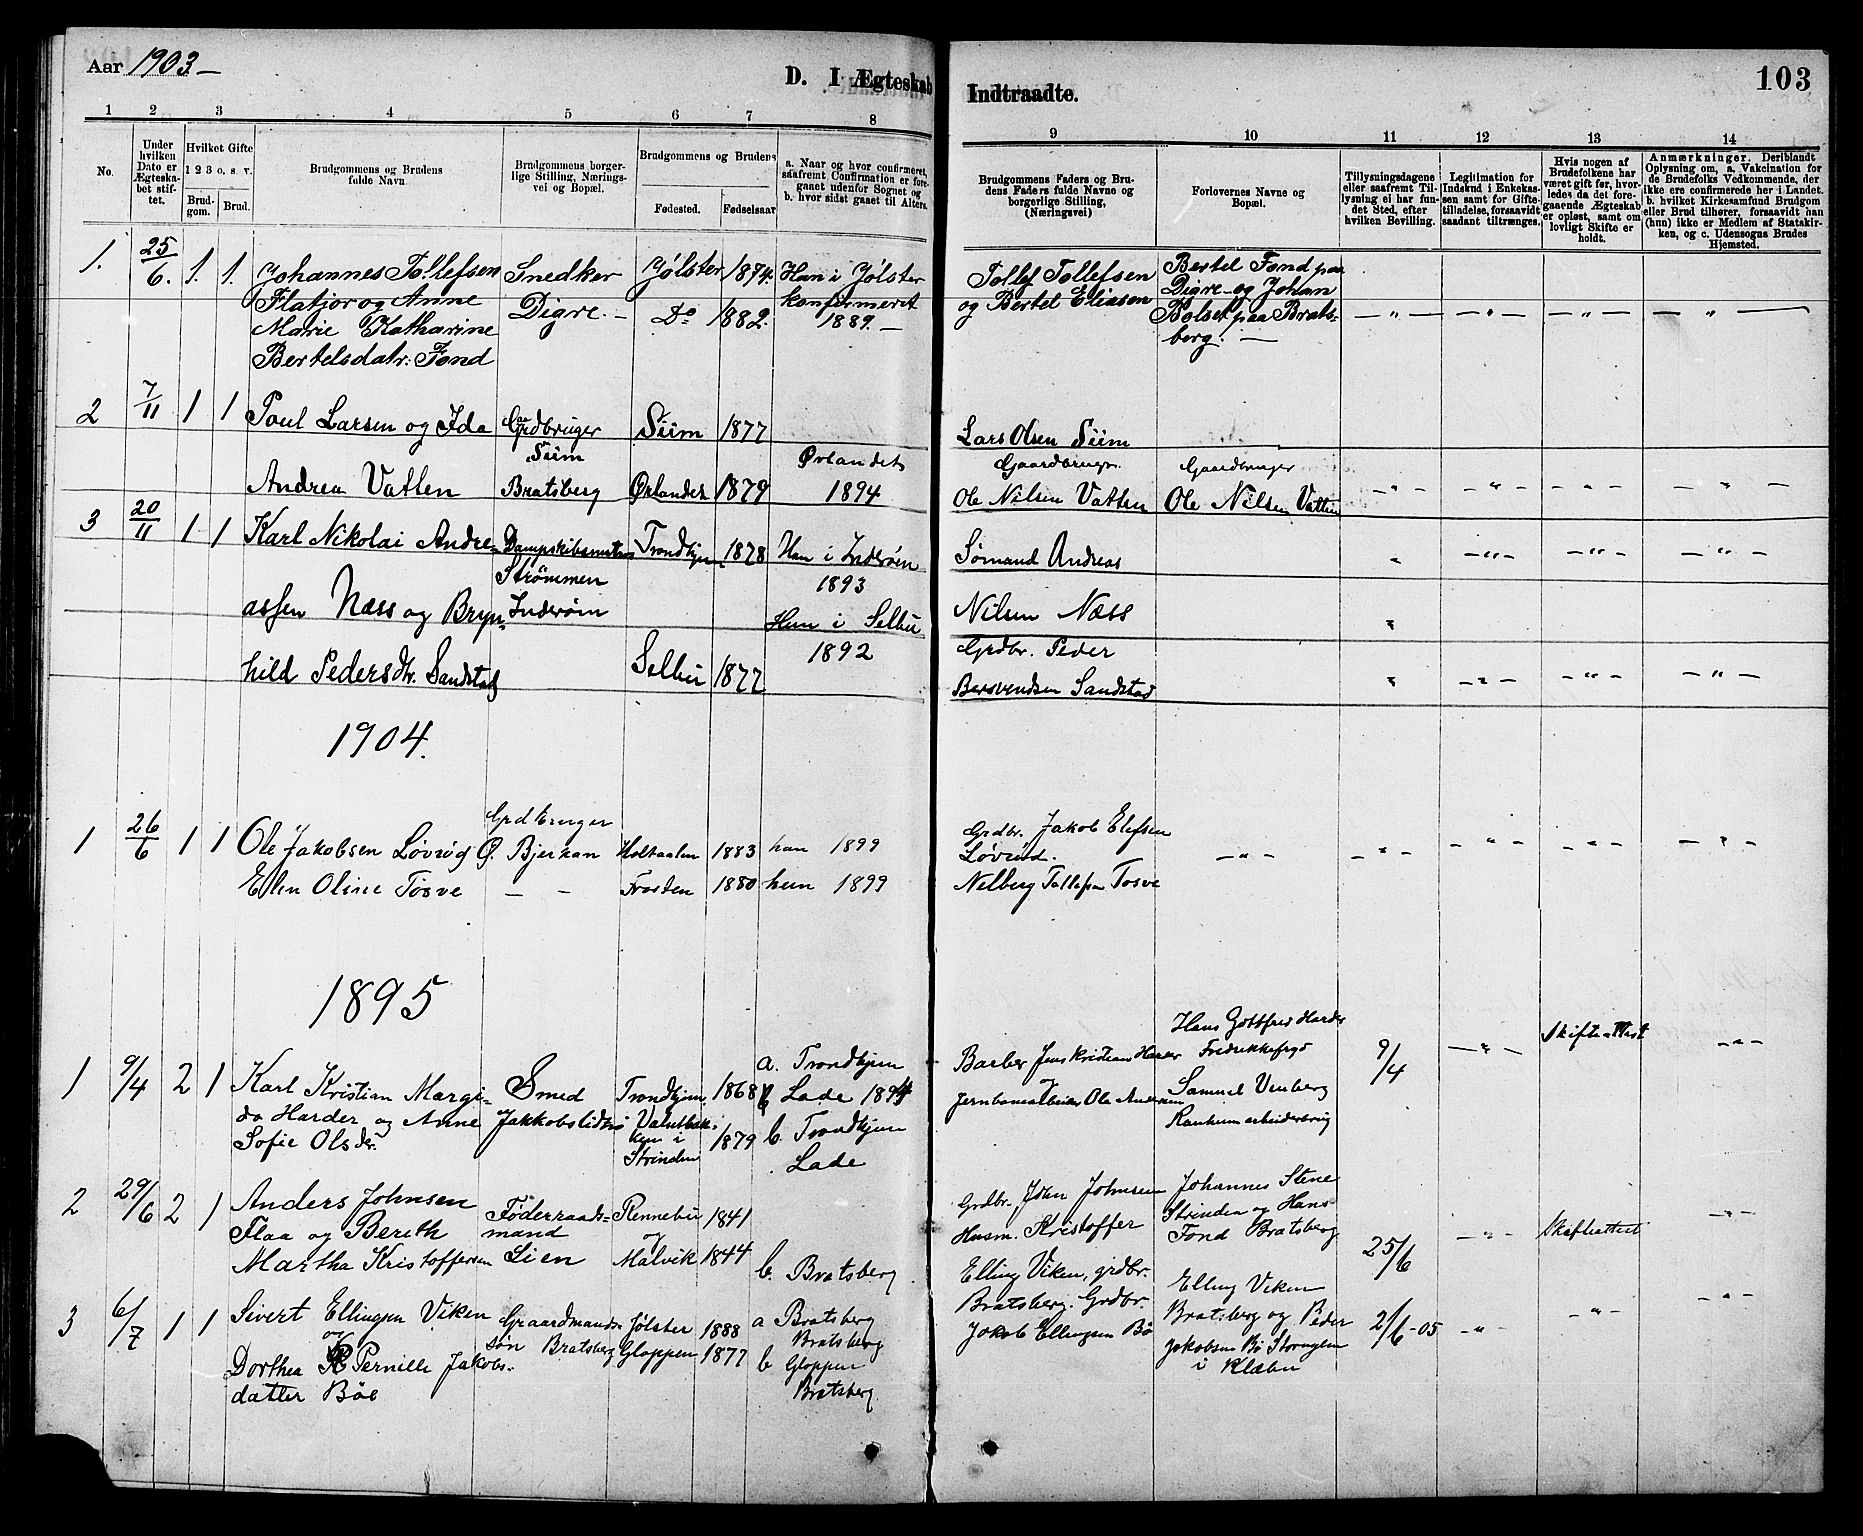 Aar 1903-
D. I Ægteskab
Indtraadte.
103
1 2 3 4 5 6 7 8
9 10 11 12 13 14
No.
Under hvilken Dato er Ægteskabet stiftet.
Hvilket Gifte 1 2 3 o. s. v.
Brudgom.
Brud.
Brudgommens og Brudens fulde Navn
Brudgommens borgerlige Stilling, Næringsvei og Bopæl.
Brudgommens og Brudens
Fødested.
Fødselsaar
a. Naar og hvor confirmeret, saafremt Confirmation er foregaaet udenfor Sognet og b. hvor sidst gaaet til Alters.
Brudgommens Faders og Brudens Faders fulde Navne og borgerlige Stilling, (Næringsvei)
Forlovernes Navne og Bopæl.
Tillysningsdagene eller saafremt Tillysning ei har fundet Sted, efter hvilken Bevilling.
Legitimation for Indskud i Enkekassen samt for Giftetilladelse, forsaavidt saadant tiltrænges.
Hvis nogen af Brudefolkene har været gift før, hvorledes da det foregaaende Ægteskab er opløst, samt om lovligt Skifte er holdt.
Anmærkninger. Deriblandt Oplysning om, a. Vakcination for de Brudefolks Vedkommende, der ikke ere confirmerede her i Landet. b. hvilket Kirkesamfund Brudgom eller Brud tilhører, forsaavidt han (hun) ikke er Medlem af Statskirken, og c. Udensogns Brudes Hjemsted.
1. 25/6. 1. 1. Johannes Tollefsen Snedker Jølster 1874. Han i Jølster
Flatjor og Anne Digre.- Do 1882. konfirmeret
Marie Katharine 1889.-
Bertelsdatr: Fond
Tollef Tollefsen Bertel Fond paa
og Bertel Eliasen Digre og Johan
Bolset paa Brats-
berg. -
2 7/11 1 1 Poul Larsen og Ida Grdbruger Siim 1877
Siim Ørlandet
Andrea Vatten Bratsberg Ørlandet 1879 1894
Lars Olsen Siim
Gaardbruger Gaardbruger
Ole Nilsen Vatten Ole Nilsen Vatten
3 20/11 1 1 Karl Nikolai Andre- Trondhjem 1878 Han i Inderøen
Strømmen 1893
assen Næss og Bryn- Inderøen Hun i Selbu
1892
hild Pedersdtr. Sandstad Selbu 1877
Sømand Andreas
Nilsen Næss
Grdbr. Peder
Bersvendsen Sandstad
1904.
1 26/6 1 1 Grdbruger
Ole Jakobsen Løvrød Ø. Bjerkan Holtaalen 1883 han 1899
Elen Oline Tøsve - - Frosten 1880 hun 1899
Grdbr. Jakob Elefsen
Løvrød.
Nelberg Tollefsen Tosve
1895
1 9/4 2 1 Karl Kristian Margi- Smed Trondhjem. 1868 a. Trondhjem
do Harder og Anne Jakkobslidtr. Lade 1894
Sofie Olsdr. i Strinden 1879 b. Trondhjem
Lade
Hans Gottfred Harder
Barber Jens Kristian Harder 9/4 Skifteattest
og Samuel Venberg
Jernbanearbeider Ole Andersen
Ranheim
2 29/6 2 1 Anders Johnsen Föderraads- Rennebu 1841
Flaa og Bereth mand og
Martha Kristoffersen Lien Malvik 1844 b. Bratsberg
Grdbr. John Johnsen Johannes Stene
Husm. Kristoffer Strinden og Hans
Fond Bratsberg 25/6 Skifteattest
3 6/7 1 1 Sivert Ellingsen Viken Gaardmands- Jølster 1888 a Bratsberg
og søn Bratsberg Gloppen 1877 Bratsberg
Dorthea Pernille Jakobs- b Gloppen
datter Böe Bratsberg.
Elling Viken, grdbr. Elling Viken
Bratsberg. Grdbr. Bratsberg og Peder
Jakob Ellingsen Bö Jakobsen Bö 2/6-05
i Klæbu